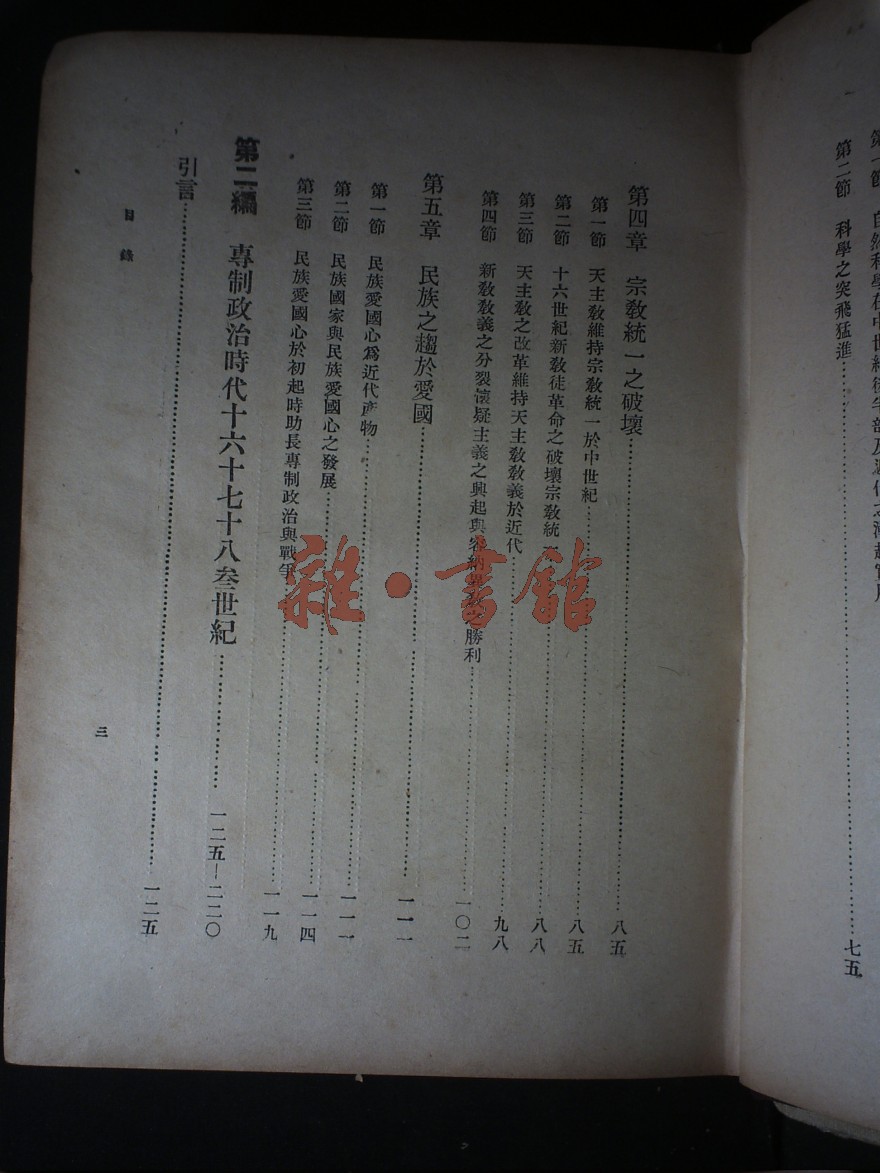 第二節　科學之突飛猛進……七五
第四章　宗教統一之破壞……八五
第一節　天主教維持宗教統一於中世紀……八五
第二節　十六世紀新教徒革命之破壞宗教統一……八八
第三節　天主教之改革維持天主教教義於近代……九八
第四節　新教教義之分裂懷疑主義之興起與容納異教之勝利……一〇二
第五章　民族之趨於愛國……一一一
第一節　民族愛國心爲近代產物……一一一
第二節　民族國家與民族愛國心之發展……一一四
第三節　民族愛國心於初起時助長專制政治與戰爭……一一九
第二編　專制政治時代十六十七十八叁世紀……一二五—二二〇
引言……一二五
目錄
三
雜·書館